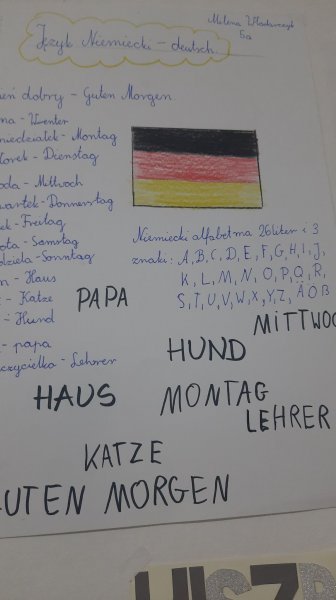 Milena Włodarczyk
5a
Język Niemiecki - deutsch.
dobry - Guten Morgen.
- Winter
niedziałek - Montag
torek - Dienstag
oda - Mittwoch
wartek - Donnerstag
ek - Freitag
ota - Samstag
dziela - Sonntag
- Haus
- Katze
- Hund
- papa
czycielka - Lehrer
Niemiecki alfabet ma 26 liter i 3
znaki: A, B, C, D, E, F, G, H, I, J,
K, L, M, N, O, P, Q, R,
S, T, U, V, W, X, Y, Z, Ä Ö ß
PAPA
MITTWOC
HUND
HAUS
MONTAG
LEHRER
KATZE
UTEN MORGEN